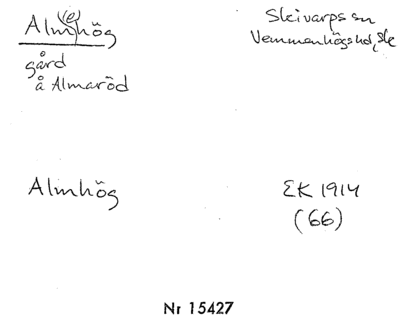 Alm(ve)hög
Skivarps sn
Vemmenhögs hd, Sk
gård
å Almaröd
Almhög
EK 1914
(66)
Nr 15427